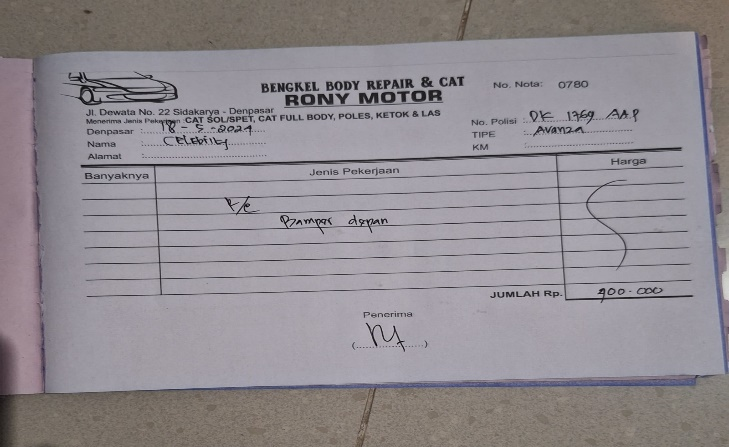 BENGKEL BODY REPAIR & CAT
RONY MOTOR
No. Nota: 0780
Jl. Dewata No. 22 Sidakarya - Denpasar
Menerima Jenis Pekerjaan CAT SOL/SPET, CAT FULL BODY, POLES, KETOK & LAS
Denpasar : 18-5-2024
Nama : Celebrity
Alamat :
No. Polisi : DK 1769 AAP
TIPE : Avanza
KM :
Banyaknya Jenis Pekerjaan Harga
Bamper depan
JUMLAH Rp. 900.000
Penerima
(..................)